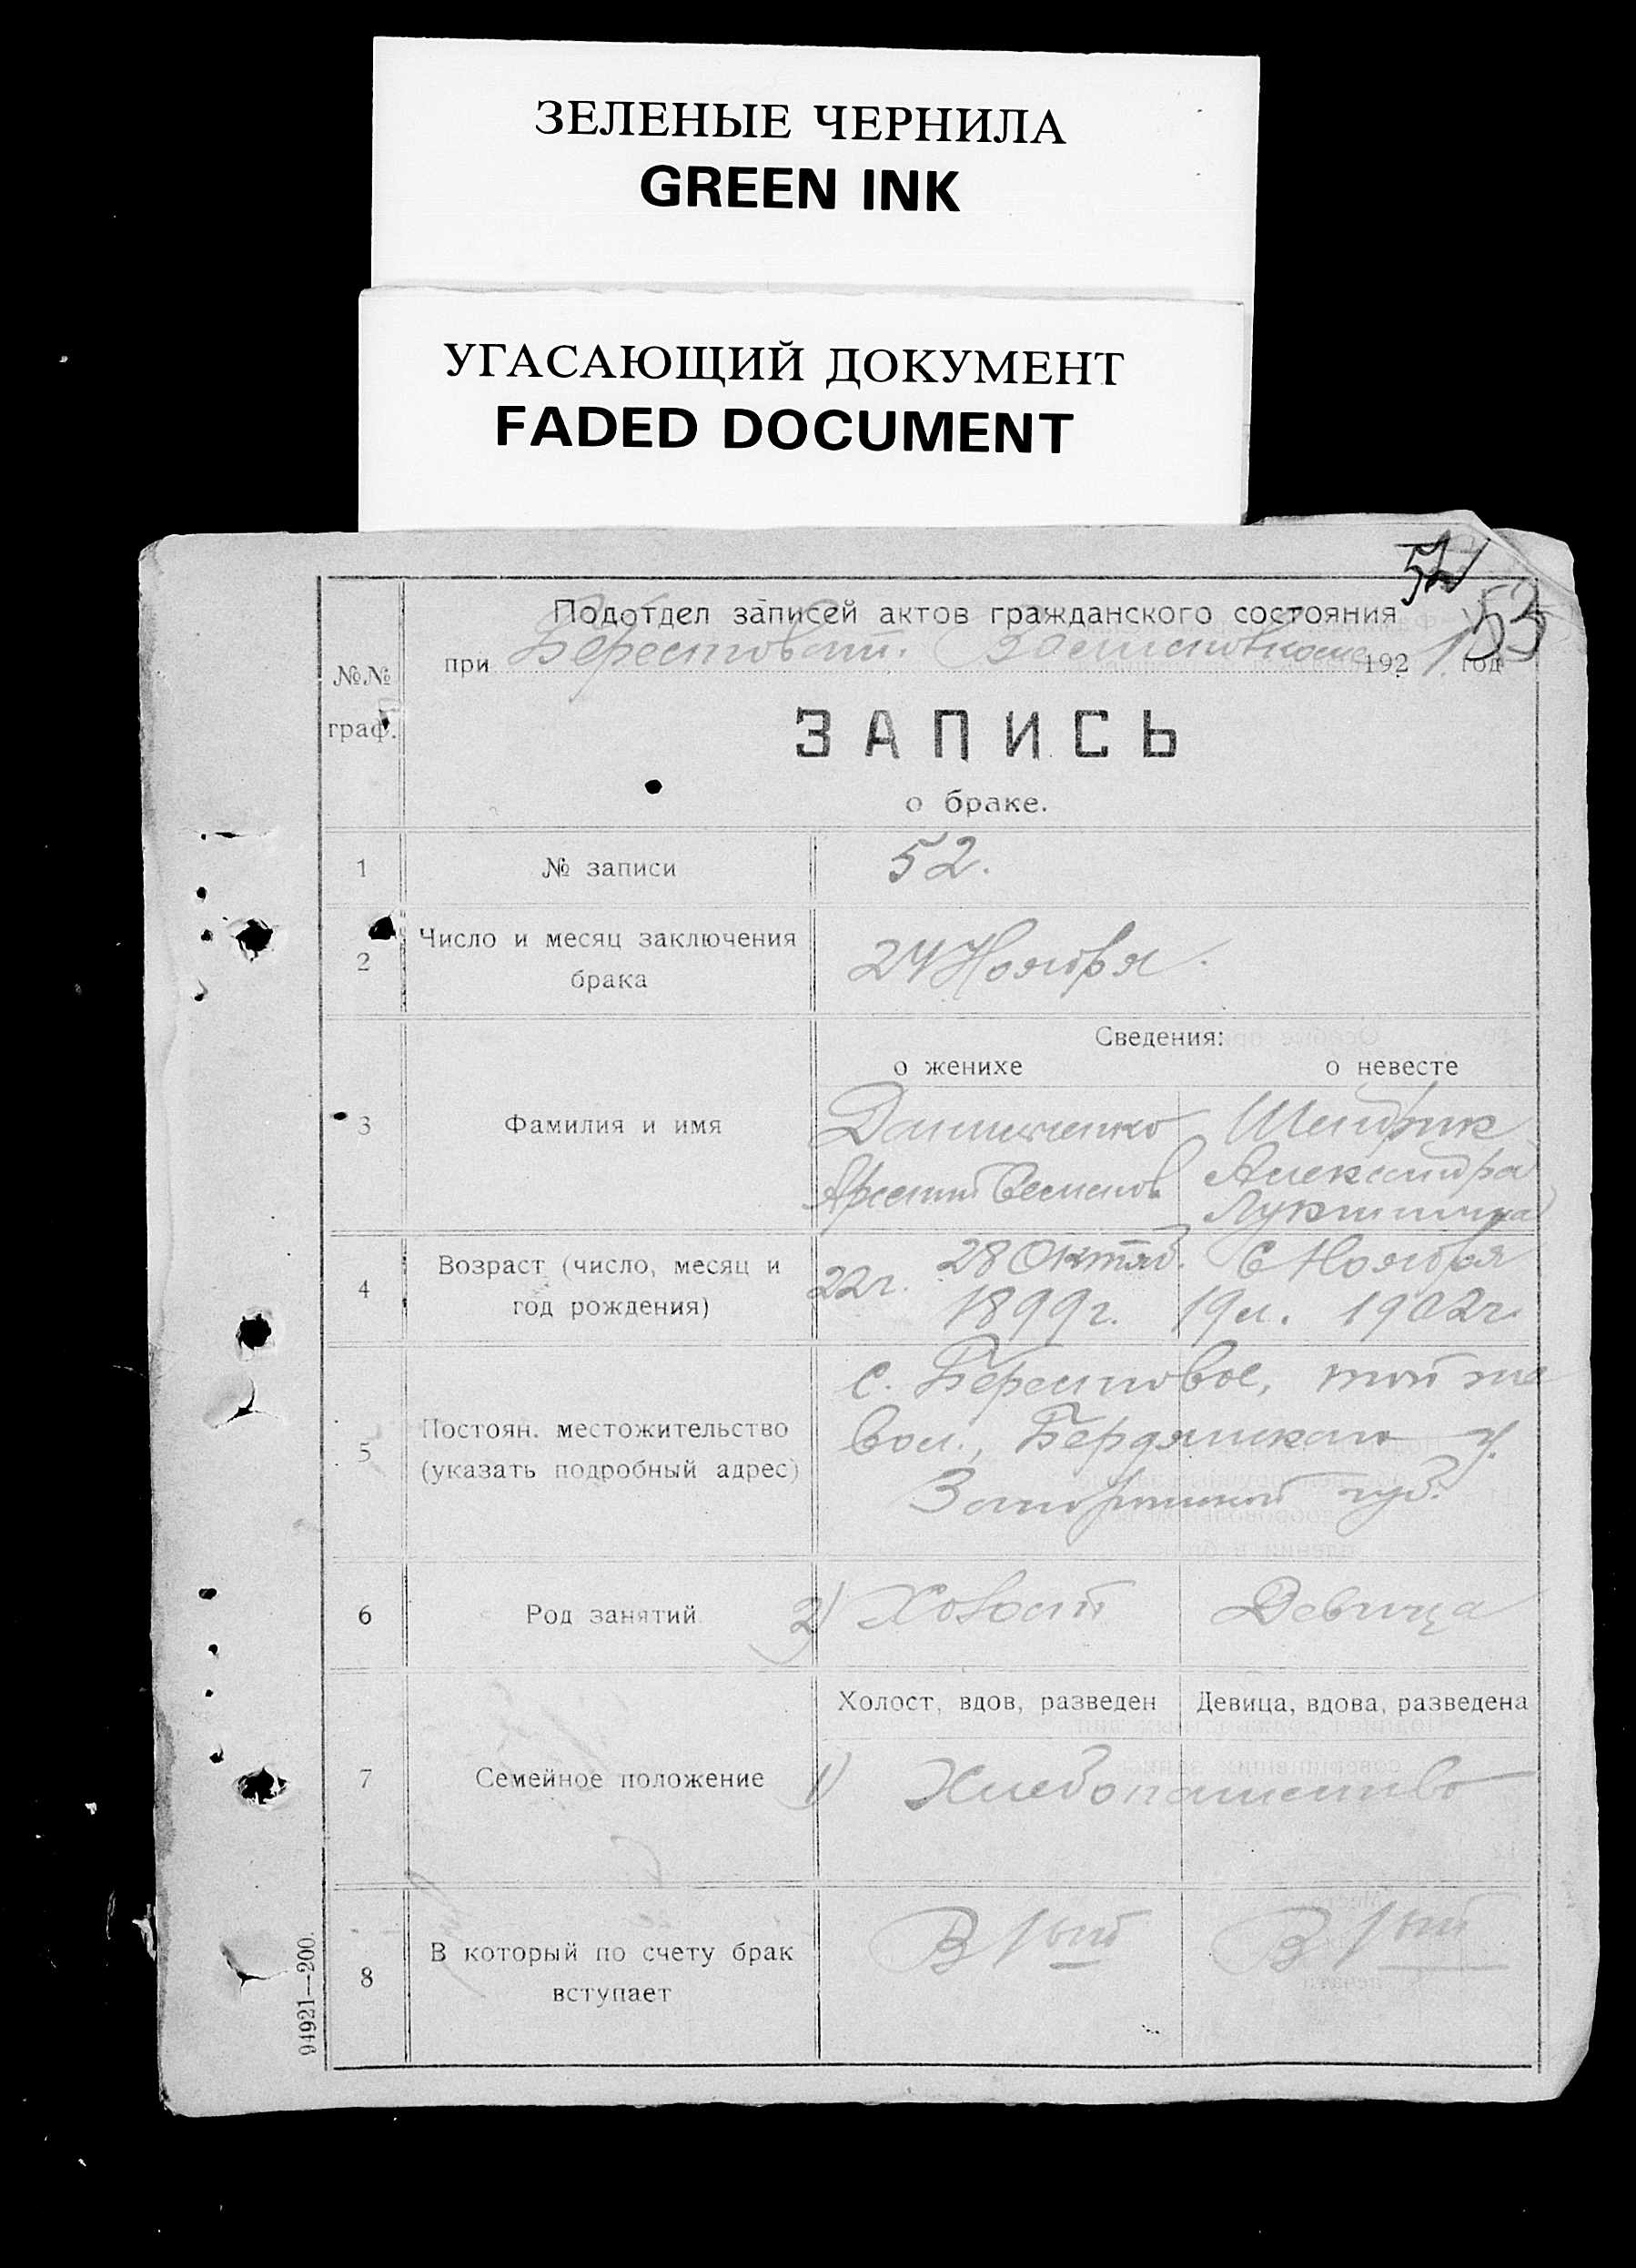 ЗЕЛЕНЫЕ ЧЕРНИЛА
GREEN INK
УГАСАЮЩИЙ ДОКУМЕНТ
FADED DOCUMENT
53
Подотдел записей актов гражданского состояния
при Берестоват. 1921 год
№№
граф.
ЗАПИСЬ
о браке.
1 № записи 52.
2 Число и месяц заключения
брака
24 Ноября.
Сведения:
о женихе о невесте
3 Фамилия и имя
Данильченко
Арсений Семенов
Александра
4 Возраст (число, месяц и
год рождения)
22г. 28 Октяб.
1899г.
6 Ноября
19 л. 1902г.
5 Постоян. местожительство
(указать подробный адрес)
с. Берестовое, той же
вол., Бердянского у.
Запорожской губ.
6 Род занятий 2) Холост Девица
Холост, вдов, разведен Девица, вдова, разведена
7 Семейное положение 1) Хлебопашество
8 В который по счету брак
вступает
В 1ый В 1ый
94921—200.